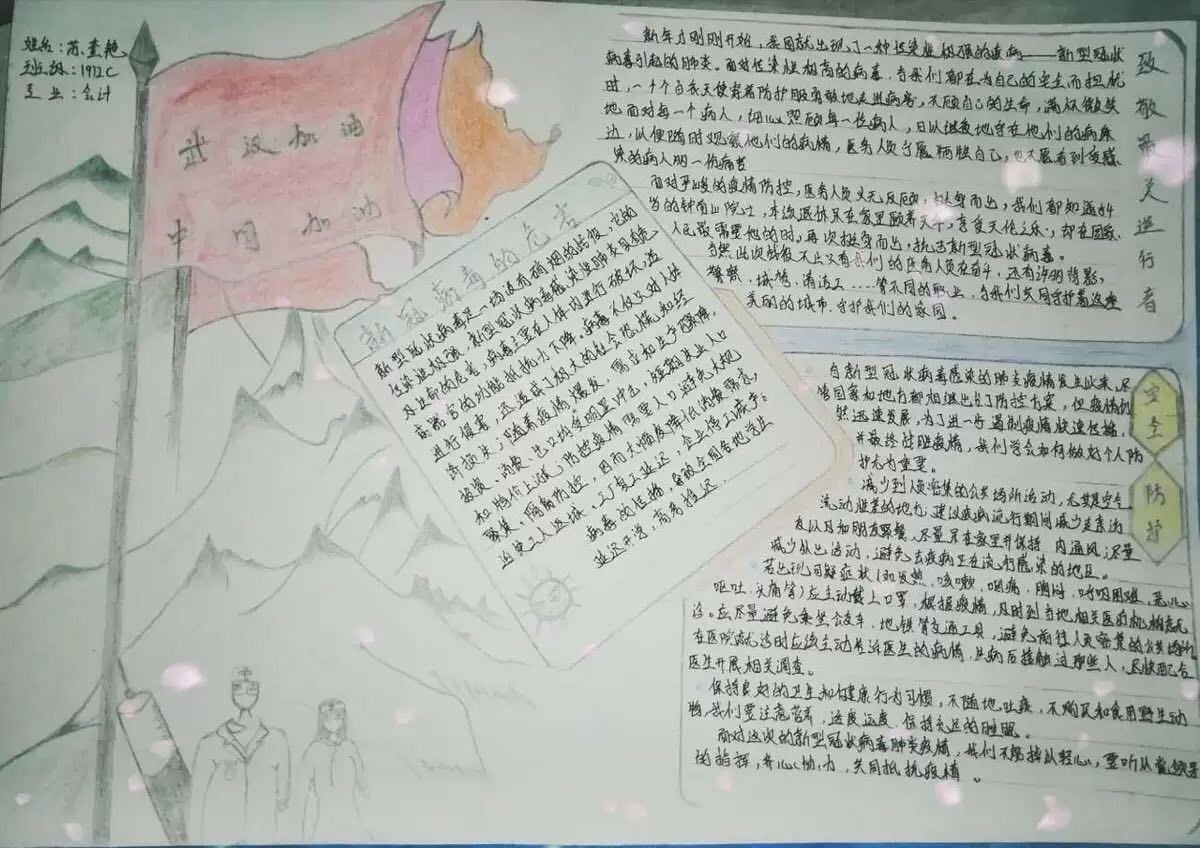 姓名：芮
班级：1912C
专业：会计
武汉加油
中国加油
新冠病毒的危害
新型冠状病毒是一场没有硝烟的战役，它的
传染性极强。新型冠状病毒感染性肺炎具
及生命的危害，病毒主要在人体内进行破坏，造
成器官的机能抵抗力下降。病毒不仅对人体
进行侵害，还造成了极大的社会恐慌和经
济损失，随着疫情爆发，需求和生产骤降，
投资、消费、出口均受明显冲击，短期失业人口
和物价上涨，防控疫情需要人口避免大规
聚集，隔离防控，因而大幅度降低消费需求，
迫使工人返城、工厂复工延迟，企业停工减产。
病毒的传播，导致全国各地学生
延迟开学，高考推迟．
致敬最美逆行者
新年才刚刚开始，我国就出现了一种传染性极强的疾病——新型冠状
病毒引起的肺炎。面对传染性极高的病毒，当我们都在为自己的安全而担忧
时，一个个白衣天使穿着防护服勇敢地走进病房，不顾自己的生命，满怀微笑
地面对每一个病人，细心照顾每一位病人，日以继夜地守在他们的病床
边，以便随时观察他们的病情，医务人员宁愿牺牲自己，也不愿看到受感
染的病人多一份痛苦
面对严峻的疫情防控，医务人员义无反顾，挺身而出，我们都知道84
岁的钟南山院士，本该退休呆在家里颐养天年，享受天伦之乐，却在国家、
人民最需要他的时，再次挺身而出，抗击新型冠状病毒。
当然此次战役不止只有我们的医务人员在奋斗，还有许多背影，
警察、城管、清洁工……管不同的职业，当我们共同守护着这座
美丽的城市，守护我们的家园。
安全防护
自新型冠状病毒感染的肺炎疫情发生以来，尽
管国家和地方都相继出台了防控方案，但疫情仍
然迅速发展，为了进一步遏制疫情快速传播，
并最终战胜疫情，我们学会如何做好个人防
护尤为重要。
减少到人员密集的公共场所活动，尤其是空气
流动性差的地方，建议疾病流行期间减少走亲访
友以及和朋友聚餐，尽量呆在家里并保持室内通风，尽量
减少外出活动，避免去疾病正在流行感染的地区。
若出现可疑症状（如发热，咳嗽，咽痛，胸闷，呼吸困难，恶心
呕吐，头痛等）应主动戴上口罩，根据疫情，及时到当地相关医疗机构就
诊。应尽量避免乘坐公交车，地铁等交通工具，避免前往人员密集的公共场所。
在医院就诊时应该主动告诉医生的病情，患病后接触过那些人，尽快配合
医生开展相关调查。
保持良好的卫生和健康行为习惯，不随地吐痰，不购买和食用野生动
物，我们要注意营养，适度运动，保持充足的睡眠。
面对这次的新型冠状病毒肺炎疫情，我们不能掉以轻心，要听从党领导
的指挥，齐心协力，共同抵抗疫情。